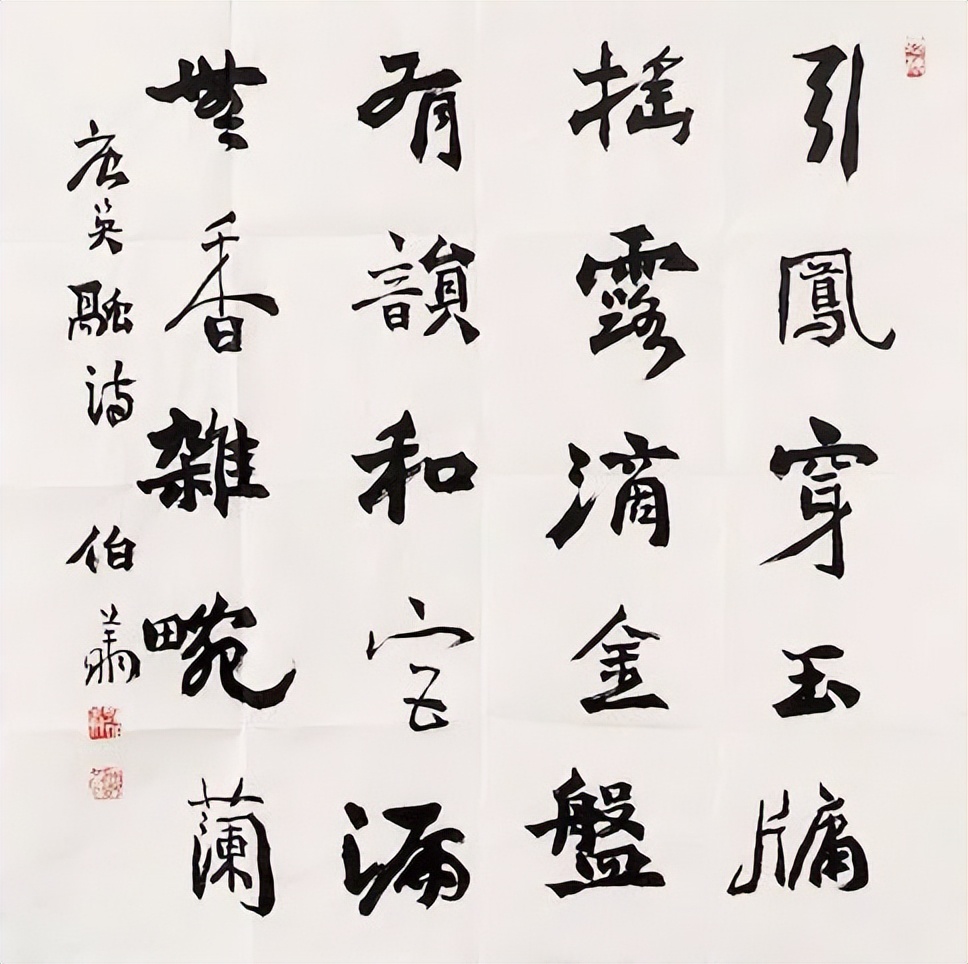 引鳳穿玉牖
搖露滴金盤
有韻和宫漏
無香雜畹蘭
唐吳融詩 伯翔